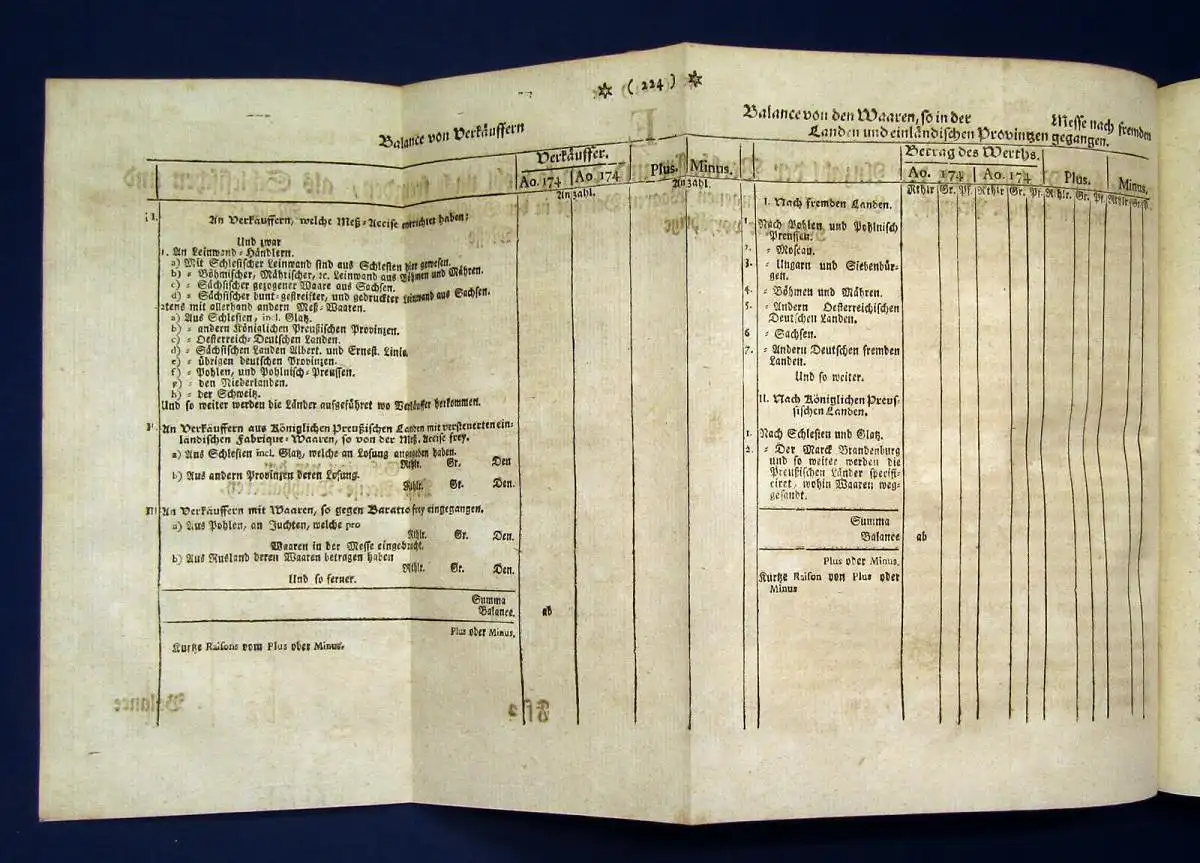 ✡ (224) ✡
Balance von Verkäuffern
Verkäuffer.
Plus. Minus.
Ao. 174 Ao. 174
Anzahl. Anzahl.
I. An Verkäuffern, welche Meß-Accise entrichtet haben;
Und zwar
1. An Leinwand-Händlern.
a) Mit Schlesischer Leinwand sind aus Schlesien hier gewesen.
b) = Böhmischer, Mährischer, ꝛc. Leinwand aus Böhmen und Mähren.
c) = Sächsischer gezogener Waare aus Sachsen.
d) = Sächsischer bunt-gestreifter, und gedruckter Leinwand aus Sachsen.
2tens mit allerhand andern Meß-Waaren.
a) Aus Schlesien, incl. Glatz.
b) = andern Königlichen Preußischen Provinzen.
c) = Oesterreich-Deutschen Landen.
d) = Sächsischen Landen Albert. und Ernest. Linie.
e) = übrigen deutschen Provinzen.
f) = Pohlen, und Pohlnisch-Preussen.
g) = den Niederlanden.
h) = der Schweitz.
Und so weiter werden die Länder aufgeführet wo Verkäuffer herkommen.
II. An Verkäuffern aus Königlichen Preußischen Landen mit versteuerten ein-
ländischen Fabrique-Waaren, so von der Meß-Accise frey.
a) Aus Schlesien incl. Glatz, welche an Losung angegeben haben.
Rthlr. Gr. Den
b) Aus andern Provinzen deren Losung.
Rthlr. Gr. Den.
III An Verkäuffern mit Waaren, so gegen Baratto frey eingegangen.
a) Aus Pohlen, an Juchten, welche pro
Rthlr. Gr. Den.
Waaren in der Messe eingebracht.
b) Aus Rusland deren Waaren betragen haben
Rthlr. Gr. Den.
Und so ferner.
Summa
Balance. ab
Plus oder Minus.
Kurtze Raisons vom Plus oder Minus.
Balance von den Waaren, so in der Messe nach fremden
Landen und einländischen Provintzen gegangen.
Betrag des Werths.
Ao. 174 Ao. 174 Plus. Minus.
Rthlr Gr. Pf. Rthlr Gr. Pf. Rthlr. Gr. Pf. Rthlr Gr. Pf.
I. Nach fremden Landen.
1. Nach Pohlen und Pohlnisch
Preussen.
2. = Moscau.
3. = Ungarn und Siebenbür-
gen.
4. = Böhmen und Mähren.
5. = Andern Oesterreichischen
Deutschen Landen.
6 = Sachsen.
7. = Andern Deutschen fremden
Landen.
Und so weiter.
II. Nach Königlichen Preus-
sischen Landen.
1. Nach Schlesien und Glatz.
2. = Der Marck Brandenburg
und so weiter werden die
Preußischen Länder specifi-
ciret, wohin Waaren weg-
gesandt.
Summa
Balance ab
Plus oder Minus.
Kurtze Raison von Plus oder
Minus